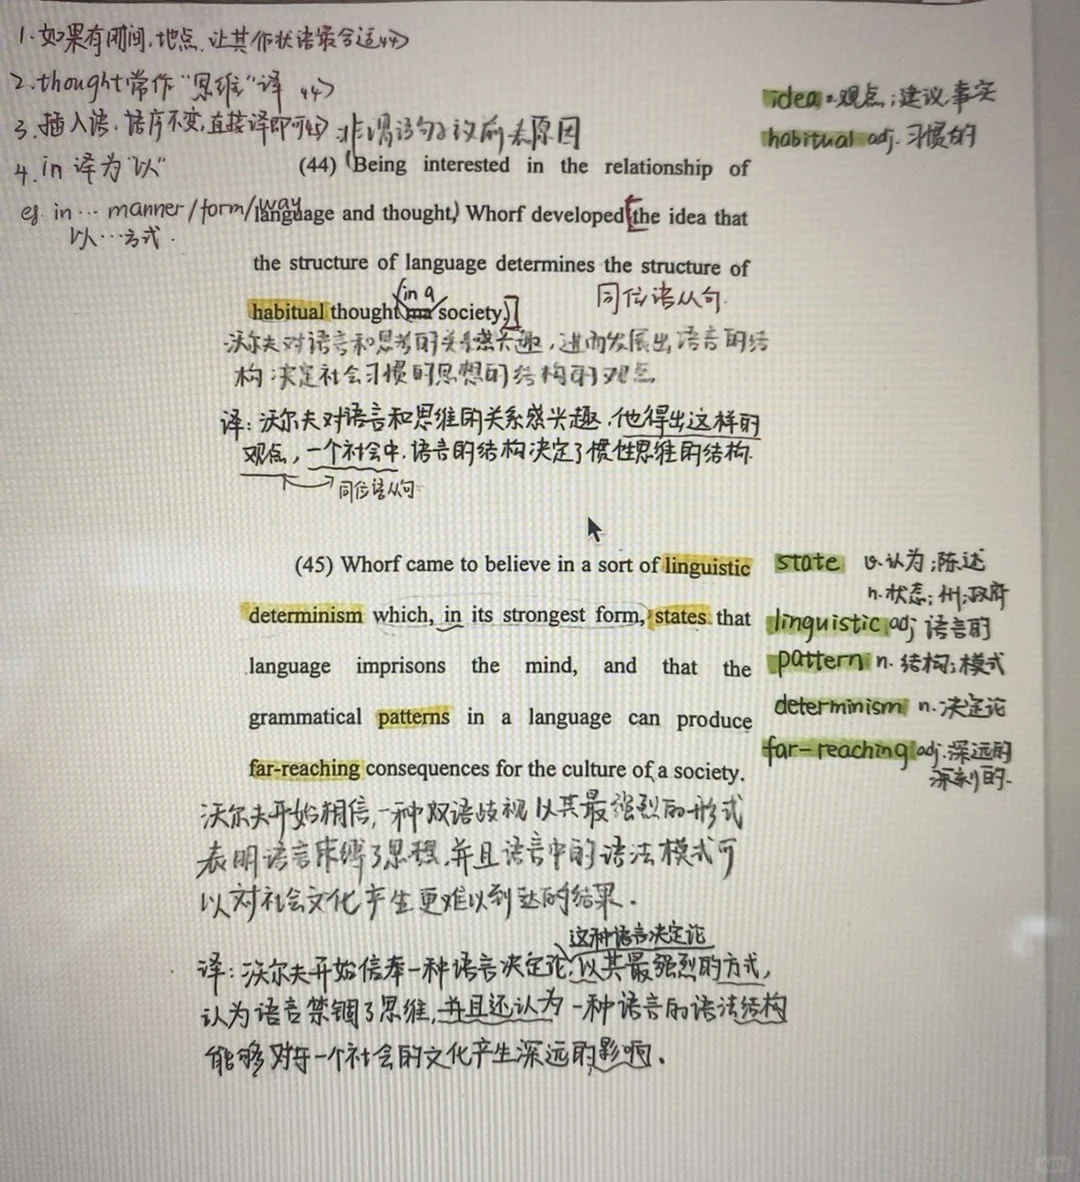 1.如果有时间,地点,让其作状语最合适<44>
2.thought常作“思维”译<44>
3.插入语,语序不变,直接译即可<45>
非谓语句子放前表原因
4.in译为“以”
eg. in … manner/form/way
以…方式.
idea n.观点;建议,事实
habitual adj.习惯的
(44) (Being interested in the relationship of
language and thought,) Whorf developed [the idea that
the structure of language determines the structure of
habitual thought in a society.]
同位语从句.
沃尔夫对语言和思考的关系感兴趣,进而发展出语言的结
构决定社会习惯的思想的结构的观点.
译:沃尔夫对语言和思维的关系感兴趣,他得出这样的
观点,一个社会中,语言的结构决定了惯性思维的结构.
同位语从句
(45) Whorf came to believe in a sort of linguistic
determinism which, in its strongest form, states that
language imprisons the mind, and that the
grammatical patterns in a language can produce
far-reaching consequences for the culture of a society.
state v.认为;陈述
n.状态;州;政府
linguistic adj 语言的
pattern n.结构;模式
determinism n.决定论
far-reaching adj.深远的
深刻的.
沃尔夫开始相信,一种双语歧视以其最强烈的形式
表明语言束缚了思想,并且语言中的语法模式可
以对社会文化产生更难以到达的结果.
这种语言决定论
译:沃尔夫开始信奉一种语言决定论,以其最强烈的方式,
认为语言禁锢了思维,并且还认为一种语言的语法结构
能够对于一个社会的文化产生深远的影响.